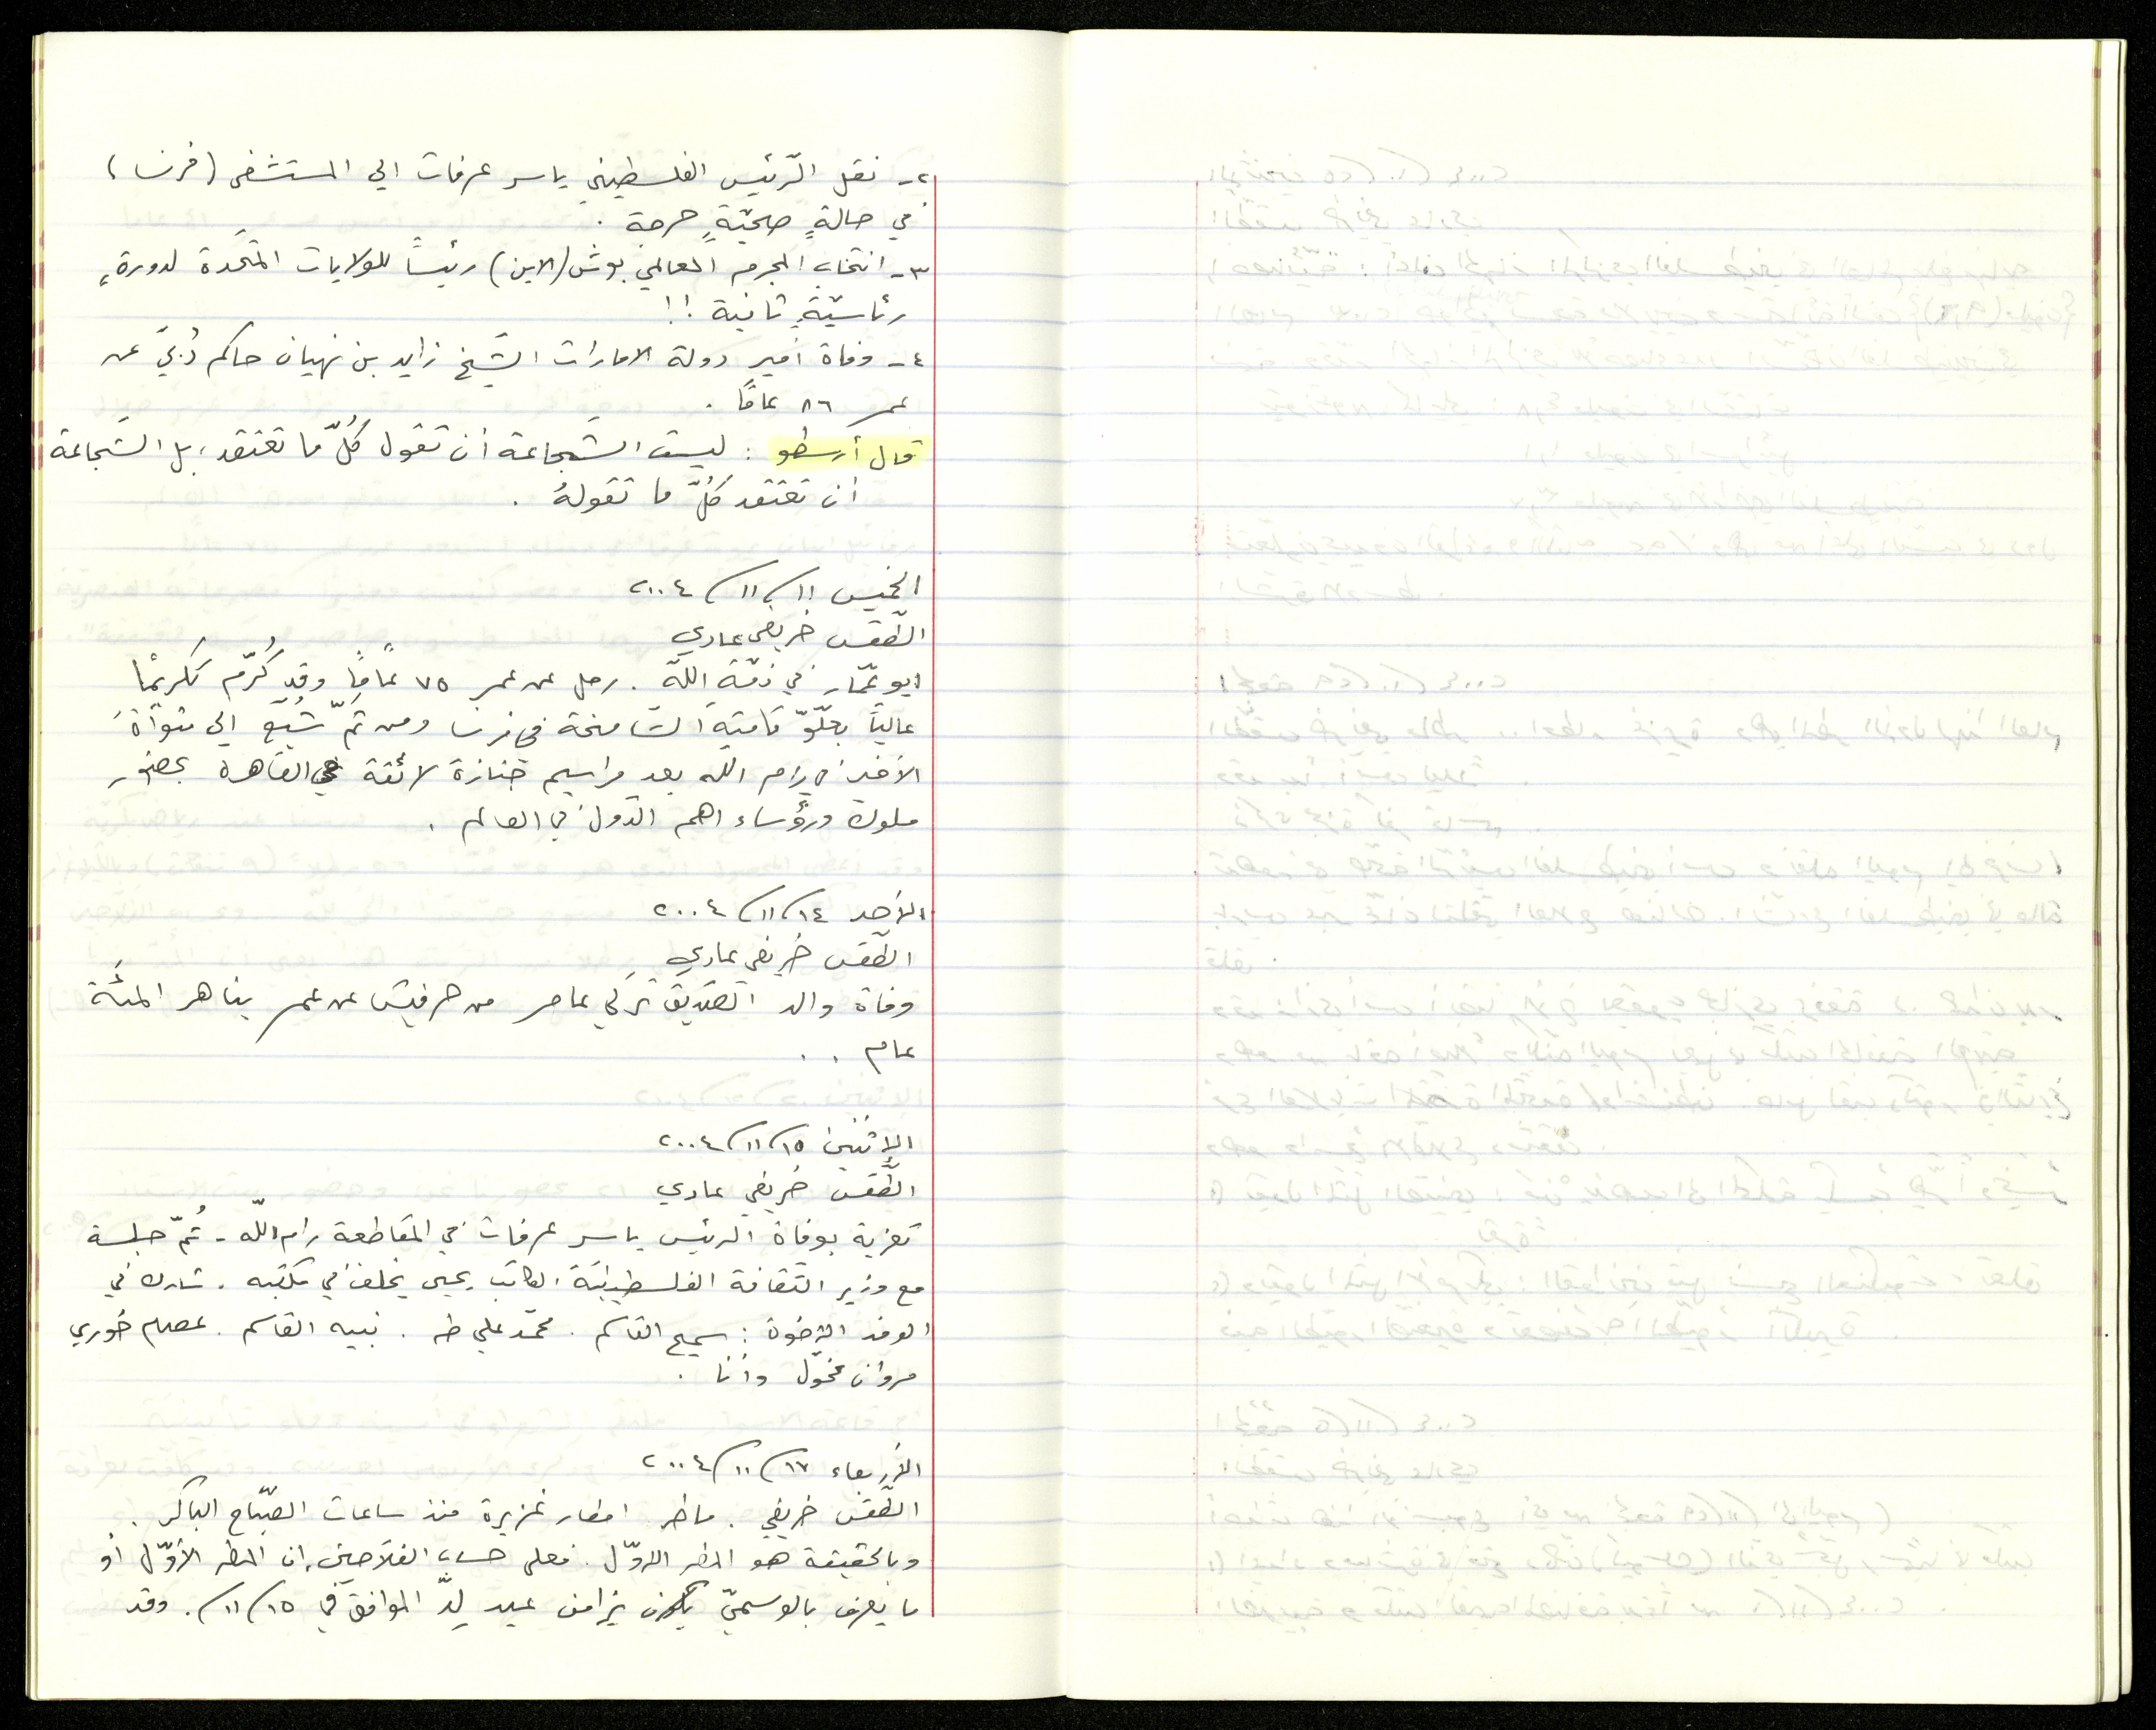 ٢- نقل الرّئيس الفلسطيني ياسر عرفات الى المستشفى (فرنسا)
في حالةٍ صحيّةٍ حرجة .
٣- انتخاب المجرم العالمي بوش (الابن) رئيسًا للولايات المتّحدة لدورةٍ
رئاسيّةٍ ثانية !!
٤- وفاة أمير دولة الامارات الشّيخ زايد بن نهيان حاكم دُبيّ عن
عمر ٨٦ عامًا .
قال أرسطو : ليست الشّجاعة أن تقول كُلّ ما تعتقد، بل الشّجاعة
أن تعتقد كُلّ ما تقولهُ .
الخميس ١١/١١/٢٠٠٤
الطّقس خريفي عادي
ابو عمّار في ذمّة اللّه . رحل عن عمر ٧٥ عامًا وقد كُرّم تكريمًا
عاليًا بعلّوّ قامتِهِ الشّامخة في فرنسا ومن ثمّ شُيّع الى مثواهُ
الأخير في رام الله بعد مراسيم جنازة لائقة في القاهرة بحضور
ملوك ورؤساء اهم الدّول في العالم .
الأحد ١٤/١١/٢٠٠٤
الطّقس خريفي عادي
وفاة والد الصّديق تركي عامر من حرفيش عن عمر يناهر المئة
عام . .
الإثنين ١٥/١١/٢٠٠٤
الطّقس خريفي عادي
تعزية بوفاة الرئيس ياسر عرفات في المقاطعة رام اللّه - ثُمّ جلسة
مع وزير الثّقافة الفلسطينيّة الكاتب يحيى يخلف في مكتبه . شارك في
الوفد الإخوة : سميح القاسم . محمّد علي طه . نبيه القاسم . عصام خوري
مروان مخّول وأنا .
الأربعاء ١٧/١١/٢٠٠٤
الطّقس خريفي . ماطر . امطار غزيرة منذ ساعات الصّباح الباكر .
وبالحقيقة هو المطر الاوّل . فعلى حساب الفلّاحين، ان المطر الأوّل أو
ما يعرف بالوسميّ يكون بزامن عيد لِدّ الموافق في ١٥/١١/ . وقد